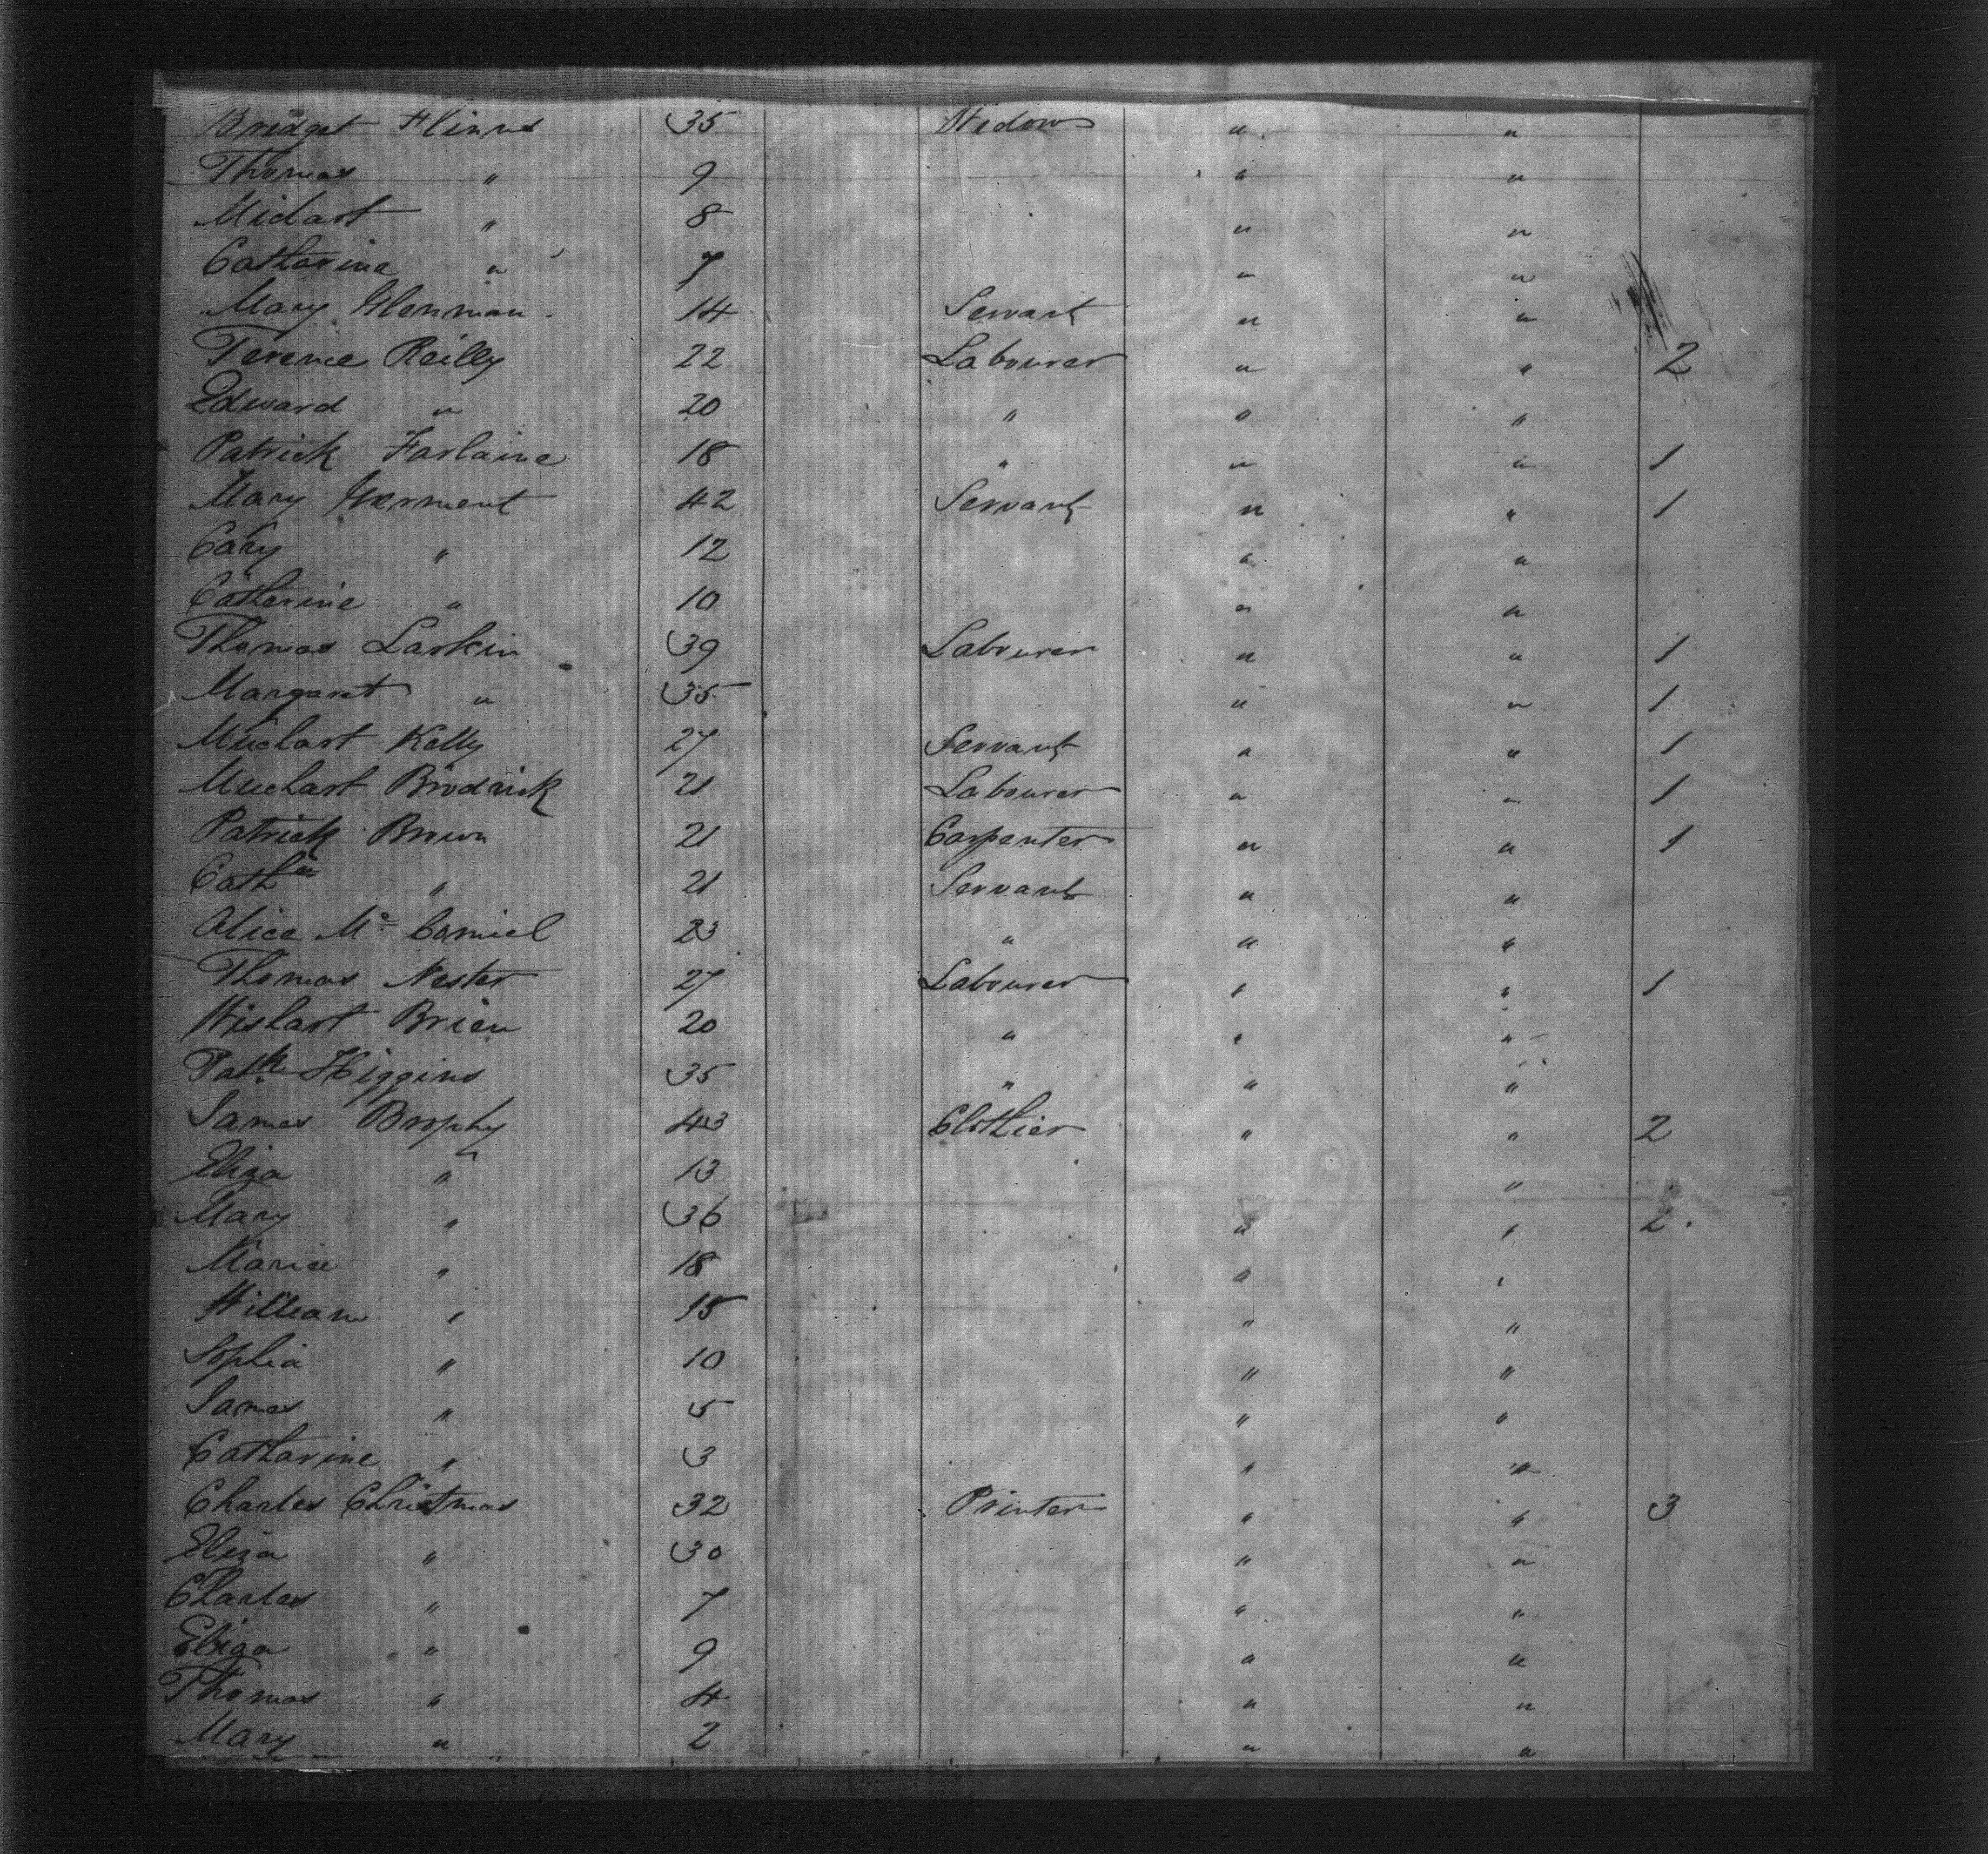 Bridget Flinns 35 Widow " "
Thomas " 9 " "
Midart " 8 " "
Catharine " 7 " "
Mary Glennan 14 Servant " "
Terence Reilly 22 Labourer " " 2
Edward " 20 " " "
Patrick Farlaine 18 " " " 1
Mary Germent 42 Servant " " 1
Cary " 12 " "
Catherine " 10 " "
Thomas Larkin 39 Labourer " " 1
Margaret " 35 " " 1
Michart Kelly 27 Servant " " 1
Muchart Brodrick 21 Labourer " " 1
Patrick Brown 21 Carpenter " " 1
Cath " 21 Servant " "
Alice Mc 23 " " "
Thomas Nester 27 Labourer " " 1
Wishart Brien 20 " " "
Patk Higgins 35 " " "
James Brophy 43 Clothier " " 2
Eliza " 13 "
Mary " 36 " " 2
Maria " 18 " "
William " 15 " "
Sophia " 10 " "
James " 5 " "
Catharine " 3 " "
Charles Christmas 32 Printer " " 3
Eliza " 30 " "
Charles " 7 " "
Eliza " 9 " "
Thomas " 4 " "
Mary " 2 " "